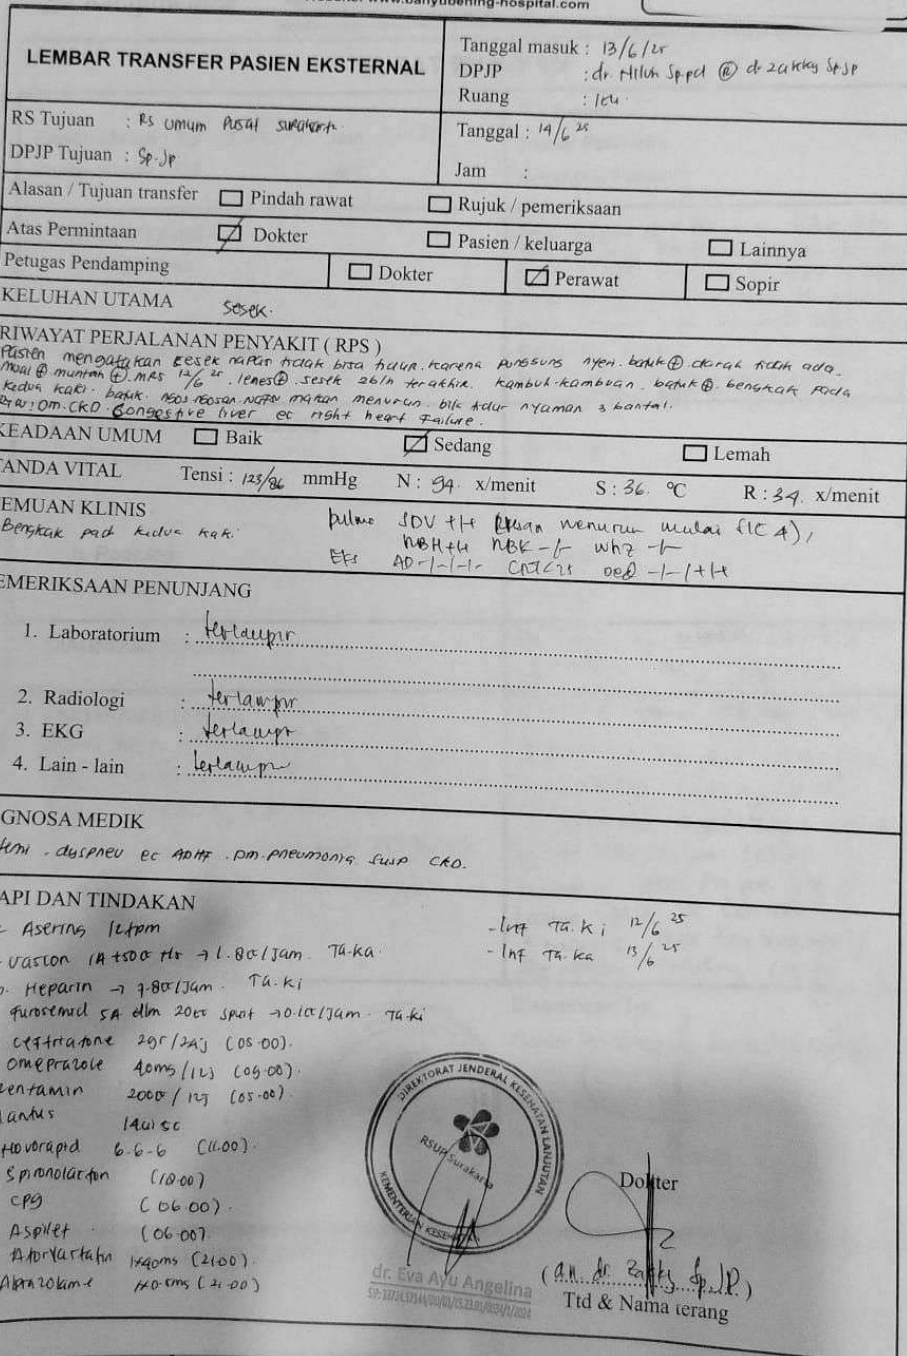 www.banyubening-hospital.com
LEMBAR TRANSFER PASIEN EKSTERNAL
Tanggal masuk : 13/6/25
DPJP : dr. Sp.pd dr zakky Sp.JP
Ruang : ICU.
RS Tujuan : RS Umum Pusat Surakarta.
DPJP Tujuan : Sp.Jp
Tanggal : 14/6 25
Jam :
Alasan / Tujuan transfer Pindah rawat Rujuk / pemeriksaan
Atas Permintaan Dokter Pasien / keluarga Lainnya
Petugas Pendamping Dokter Perawat Sopir
KELUHAN UTAMA sesek.
RIWAYAT PERJALANAN PENYAKIT ( RPS )
Pasien mengatakan sesek napas tidak bisa tidur. karena punggung nyeri. batuk ⊕ darah tidak ada.
mual ⊕ muntah ⊕. MRS 12/6 25. lemes⊕. sesek 2bln terakhir. kambuh-kambuan. batuk⊕. bengkak pada
kedua kaki. batuk. ngos ngosan. nafsu makan menurun. bila tidur nyaman 3 bantal.
DM. CKD. Congestive liver ec right heart Failure.
KEADAAN UMUM Baik Sedang Lemah
TANDA VITAL Tensi : 123/86 mmHg N : 94. x/menit S : 36. °C R : 34. x/menit
TEMUAN KLINIS
Bengkak pada kedua kaki.
pulmo SDV +/+ kesan menurun mulai (SIC 4),
RBH +/+ RBK -/- whz -/-
Eks AD -/-/-/- CRT<2s oed -/-/+/+
PEMERIKSAAN PENUNJANG
1. Laboratorium : terlampir
2. Radiologi : terlampir
3. EKG : terlampir
4. Lain - lain : terlampir
GNOSA MEDIK
dyspneu ec ADHF. DM. pneumonia susp CKD.
API DAN TINDAKAN
- Asering 12tpm
- Inf Ta. Ki 12/6 25
- vascon 1A + 50cc → 1.8cc/Jam. Ta-Ka.
- Inf Ta. Ka 13/6 25
Heparin → 7.8cc/Jam. Ta. Ki
Furosemid 5A dlm 20cc spuit → 0.1cc/Jam. Ta-Ki
ceftriaxone 2gr/24j (05.00).
omeprazole 40mg/12j (05.00).
/12j (05.00).
Lantus 14ui sc
Novorapid 6-6-6 (11.00).
Spironolacton (18.00)
CPG (06.00).
Aspilet (06.00).
Atorvastatin 1x40mg (21.00).
Alprazolame 1x0.5mg (21.00)
DIREKTORAT JENDERAL KESEHATAN LANJUTAN
RSUP Surakarta
KEMENTERIAN KESEHATAN
dr. Eva Ayu Angelina
Dokter
( a.n. dr. Zakky Sp.JP. )
Ttd & Nama terang